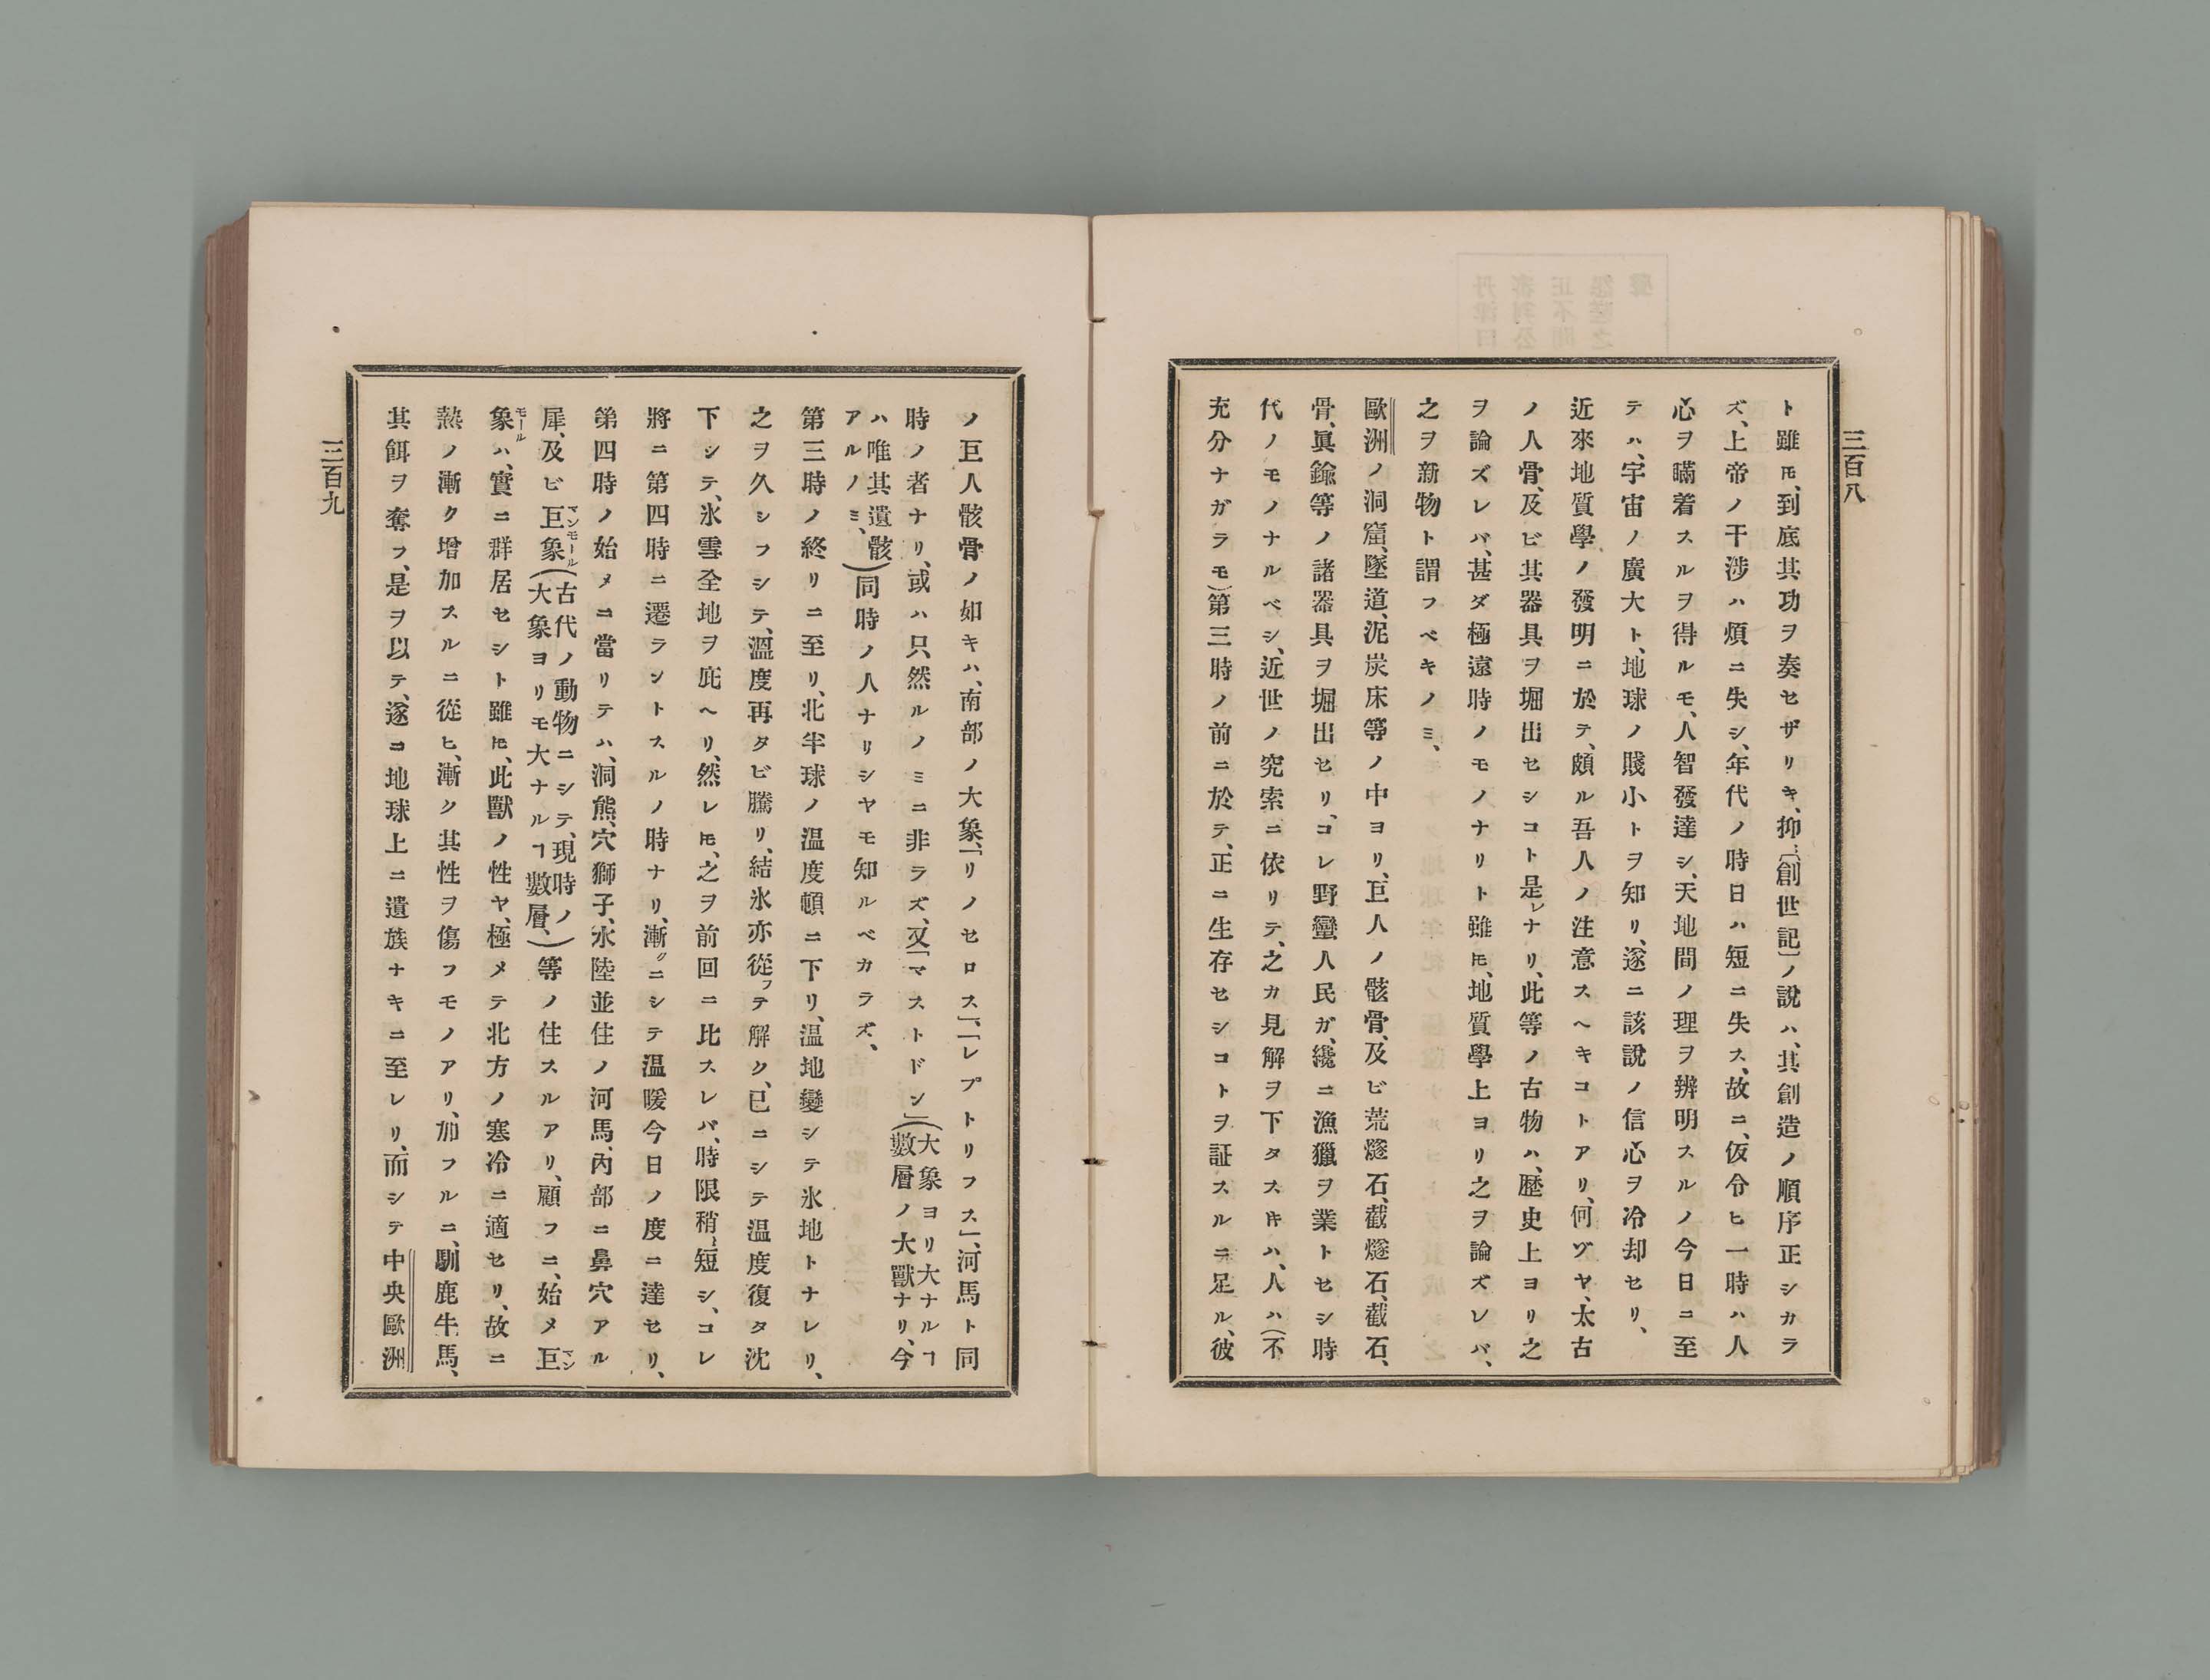 三百八
ト雖𪜈、到底其功ヲ奏セザリキ、抑〻「創世記」ノ說ハ、其創造ノ順序正シカラ
ズ、上帝ノ干涉ハ煩ニ失シ、年代ノ時日ハ短ニ失ス、故ニ、仮令ヒ一時ハ人
心ヲ瞞着スルヲ得ルモ、人智發達シ、天地間ノ理ヲ辨明スルノ今日ニ至
テハ、宇宙ノ廣大ト、地球ノ賤小トヲ知リ、遂ニ該說ノ信心ヲ冷却セリ、
近來地質學ノ發明ニ於テ、頗ル吾人ノ注意スヘキコトアリ、何ヅヤ、太古
ノ人骨、及ビ其器具ヲ堀出セシコト是レナリ、此等ノ古物ハ、歷史上ヨリ之
ヲ論ズレバ、甚ダ極遠時ノモノナリト雖𪜈、地質學上ヨリ之ヲ論ズレバ、
之ヲ新物ト謂フベキノミ、
歐洲ノ洞窟、墜道、泥炭床等ノ中ヨリ、巨人ノ骸骨、及ビ荒燧石、截燧石、截石、
骨、眞鍮等ノ諸器具ヲ堀出セリ、コレ野蠻人民ガ、纔ニ漁獵ヲ業トセシ時
代ノモノナルベシ、近世ノ究索ニ依リテ、之カ見解ヲ下タスキハ、人ハ(不
充分ナガラモ)第三時ノ前ニ於テ、正ニ生存セシコトヲ証スルニ足ル、彼
ノ巨人骸骨ノ如キハ、南部ノ大象、「リノセロス」、「レプトリフス」、河馬ト同
時ノ者ナリ、或ハ只然ルノミニ非ラズ、又「マストドン」(大象ヨリ大ナルヿ
數層ノ大獸ナリ、今
ハ唯其遺骸
アルノミ、)同時ノ人ナリシヤモ知ルベカラズ、
第三時ノ終リニ至リ、北半球ノ温度頓ニ下リ、温地變シテ氷地トナレリ、
之ヲ久シフシテ、溫度再タビ騰リ、結氷亦從フテ解ク、已ニシテ温度復タ沈
下シテ、氷雪全地ヲ庇ヘリ、然レ𪜈、之ヲ前回ニ比スレバ、時限稍〻短シ、コレ
將ニ第四時ニ遷ラントスルノ時ナリ、漸クニシテ温暖今日ノ度ニ達セリ、
第四時ノ始メニ當リテハ、洞熊、穴獅子、水陸並住ノ河馬、內部ニ鼻穴アル
犀、及ビ巨象マンモール(古代ノ動物ニシテ、現時ノ
大象ヨリモ大ナルヿ數層、)等ノ住スルアリ、顧フニ、始メ巨マン
象モールハ、實ニ群居セシト雖𪜈、此獸ノ性ヤ、極メテ北方ノ寒冷ニ適セリ、故ニ
熱ノ漸ク增加スルニ從ヒ、漸ク其性ヲ傷フモノアリ、加フルニ、馴鹿牛馬、
其餌ヲ奪フ、是ヲ以テ、遂コ地球上ニ遺族ナキニ至レリ、而シテ中央歐洲
三百九